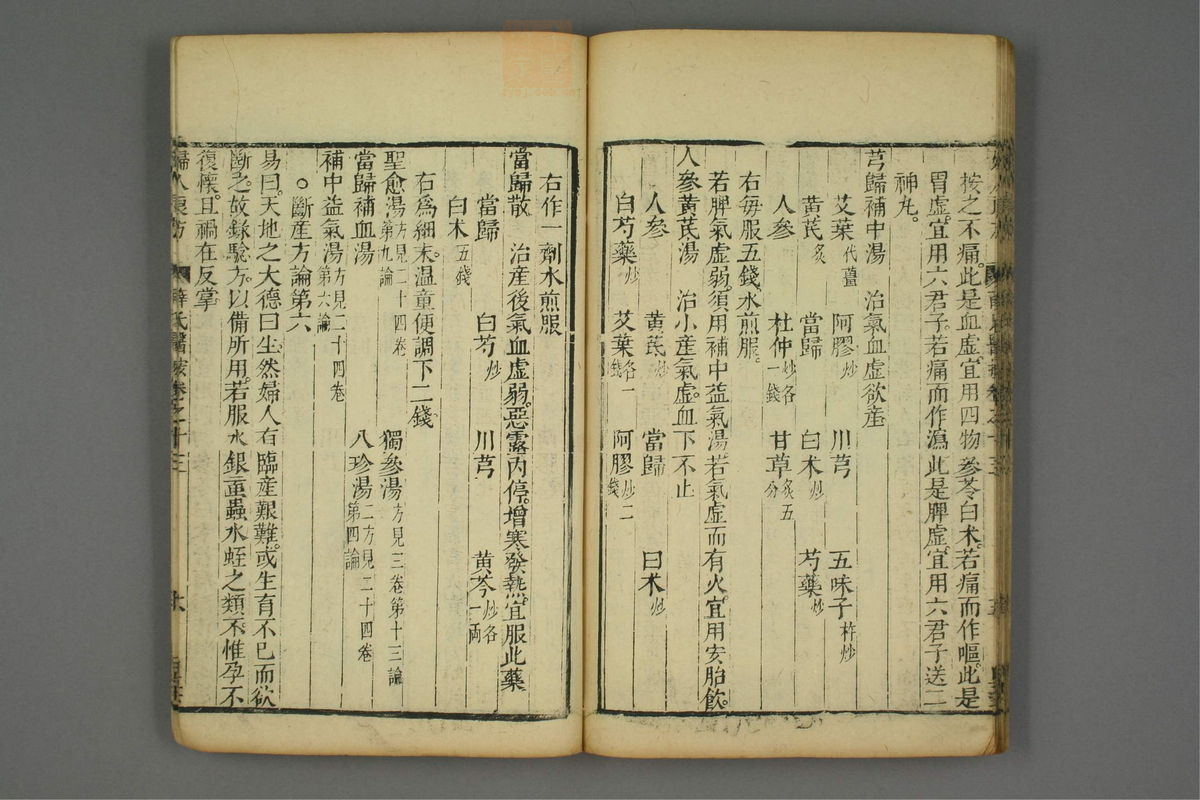 按之不痛。此是血虛。宜用四物參苓白术。若痛而作嘔。此是
胃虛。宜用六君子。若痛而作瀉。此是脾虛。宜用六君子送二
神丸。
芎歸補中湯 治氣血虛欲產
艾葉代薑 阿膠炒 川芎 五味子杵炒
黃芪炙 當歸 白术炒 芍藥炒
人參 杜仲炒各一錢 甘草炙五分
右每服五錢。水煎服。
若脾氣虛弱。須用補中益氣湯若氣虛而有火宜用安胎飲。
人參黃芪湯 治小產氣虛。血下不止
人參 黃芪炒 當歸 白术炒
白芍藥炒 艾葉各一錢 阿膠炒二錢
右作一劑水煎服
當歸散 治產後氣血虛弱。惡露內停。增寒發熱。宜服此藥
當歸 白芍炒 川芎 黃芩炒各一兩
白术五錢
右爲細末。溫童便調下二錢。
聖愈湯方見二十四卷第九論 獨參湯方見三卷第十三論
當歸補血湯 八珍湯二方見二十四卷第四論
補中益氣湯方見二十四卷第六論
○斷產方論第六
易曰。天地之大德曰生。然婦人有臨產艱難。或生育不已而欲
斷之。故錄驗方。以備所用。若服水銀䖟蟲水蛭之類。不惟孕不
復懷。且禍在反掌
婦人良方 薛氏醫按卷之十三 十六